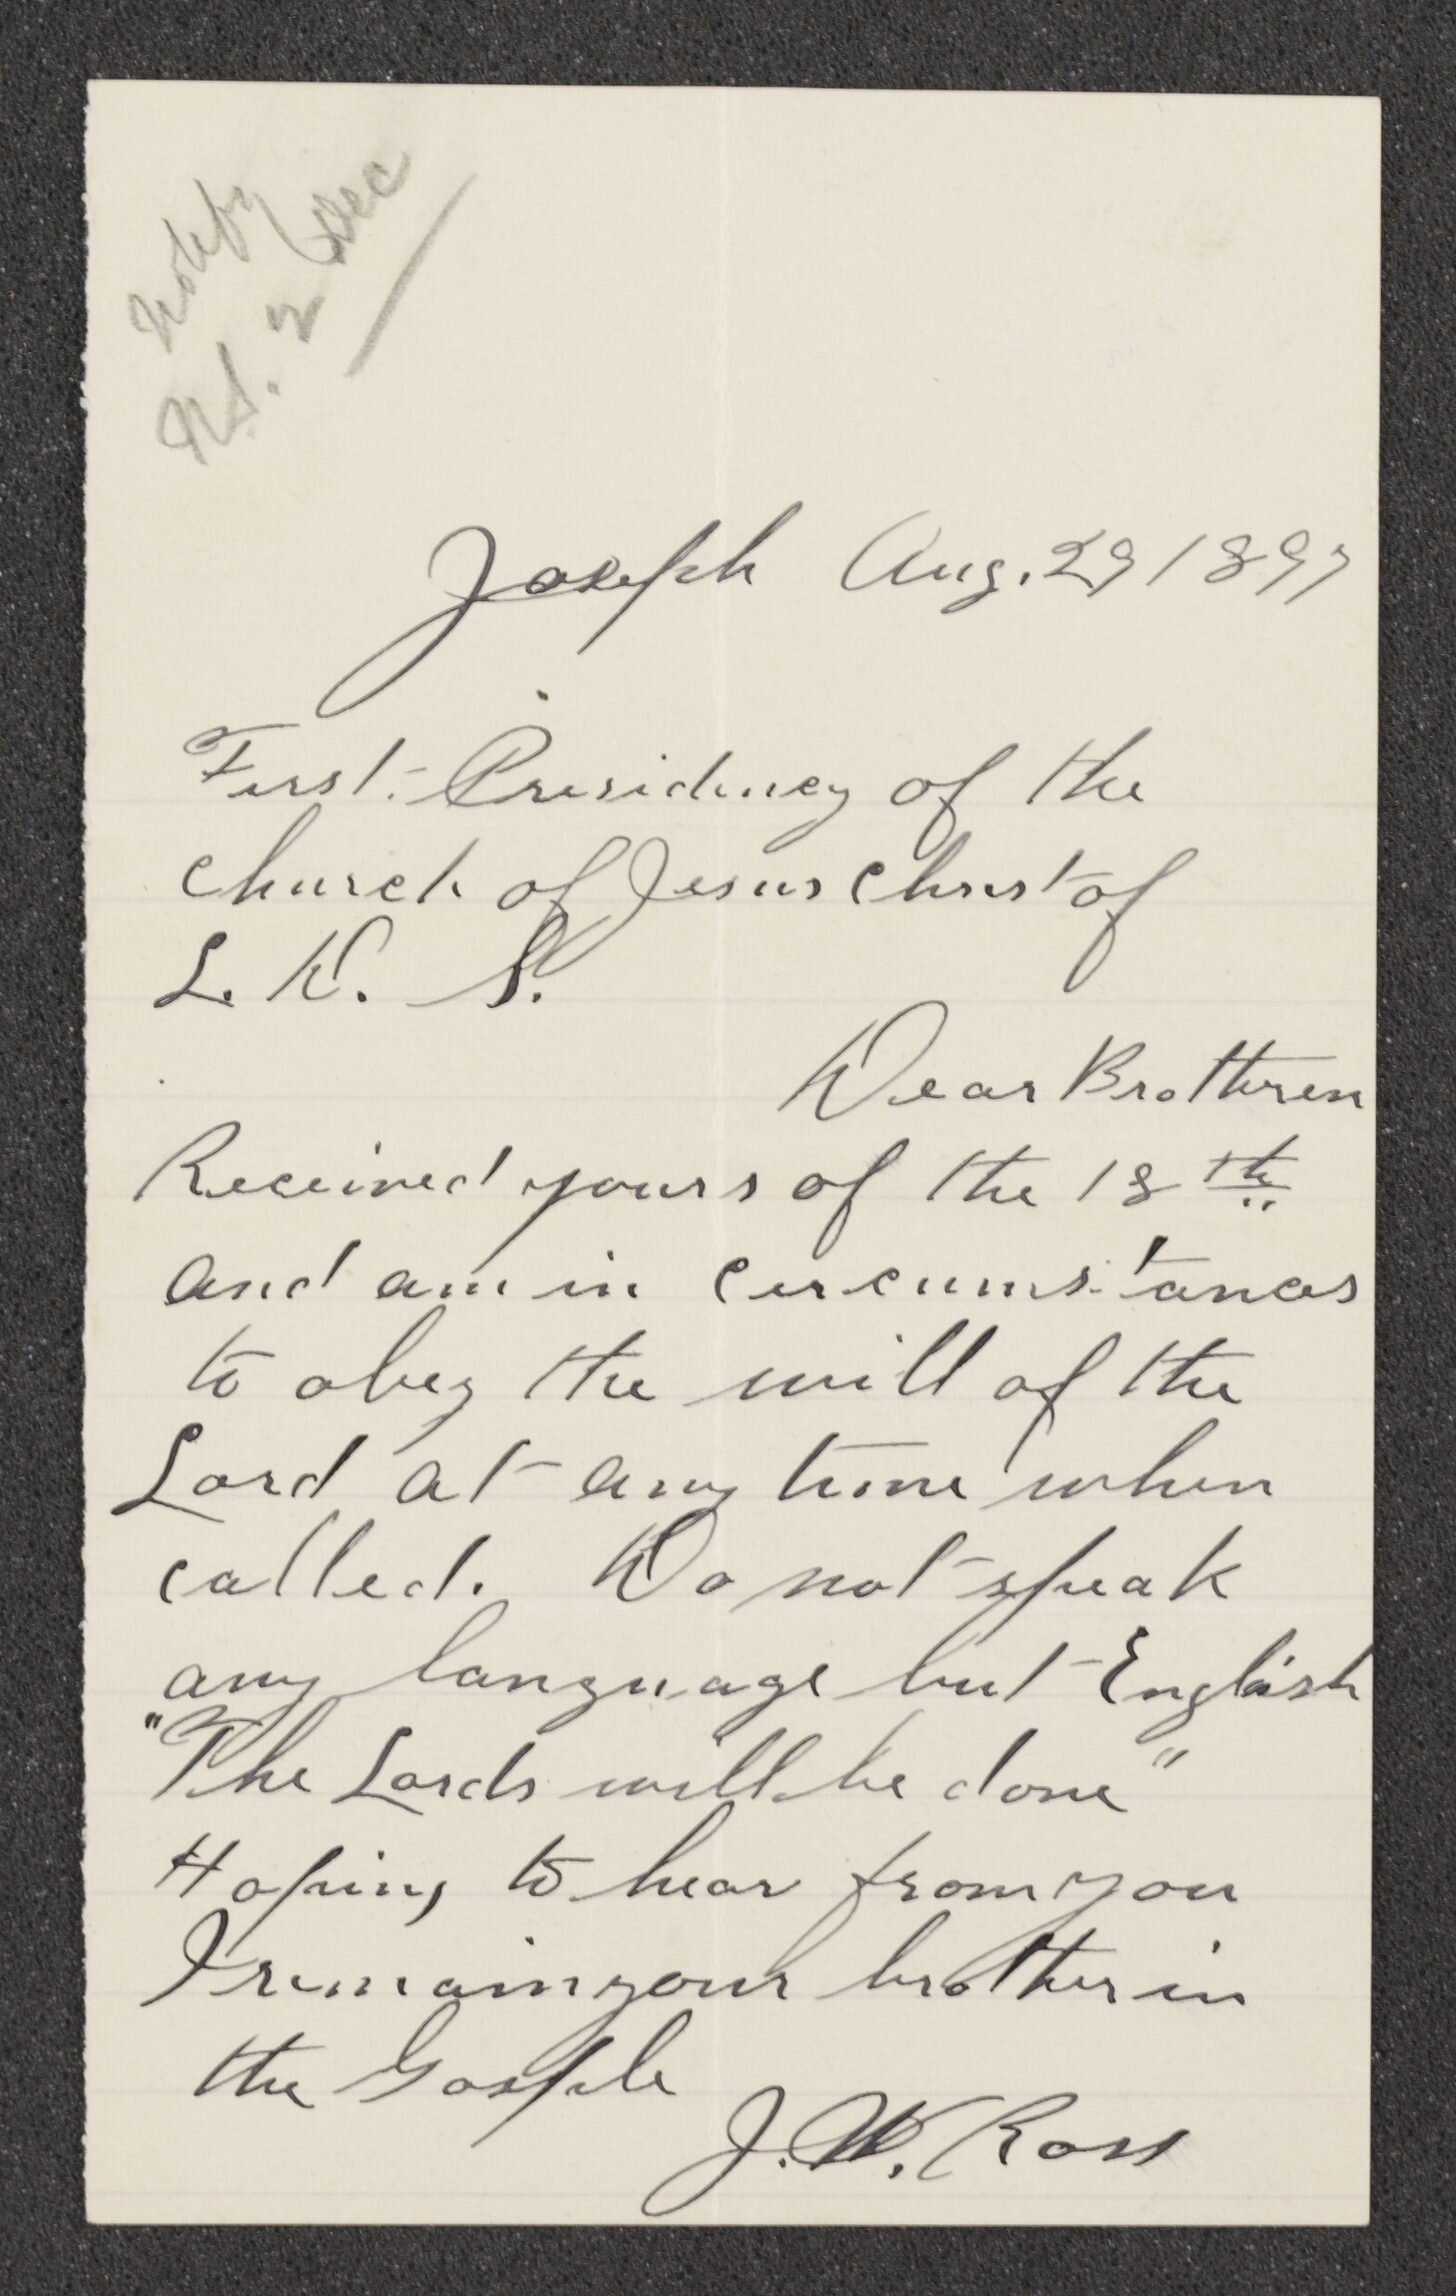 Notify
N.S. 2 Dec
Joseph Aug. 29 1897
First Presidency of the
church of Jesus Christ of
L. D. S.
Dear Brotheren
Received yours of the 18th
and am in circumstances
to obey the will of the
Lord at any time when
called. Do not speak
any language but English
"The Lords will be done"
Hoping to hear from you
I remain your brother in
the Gosple
J. W. Ross